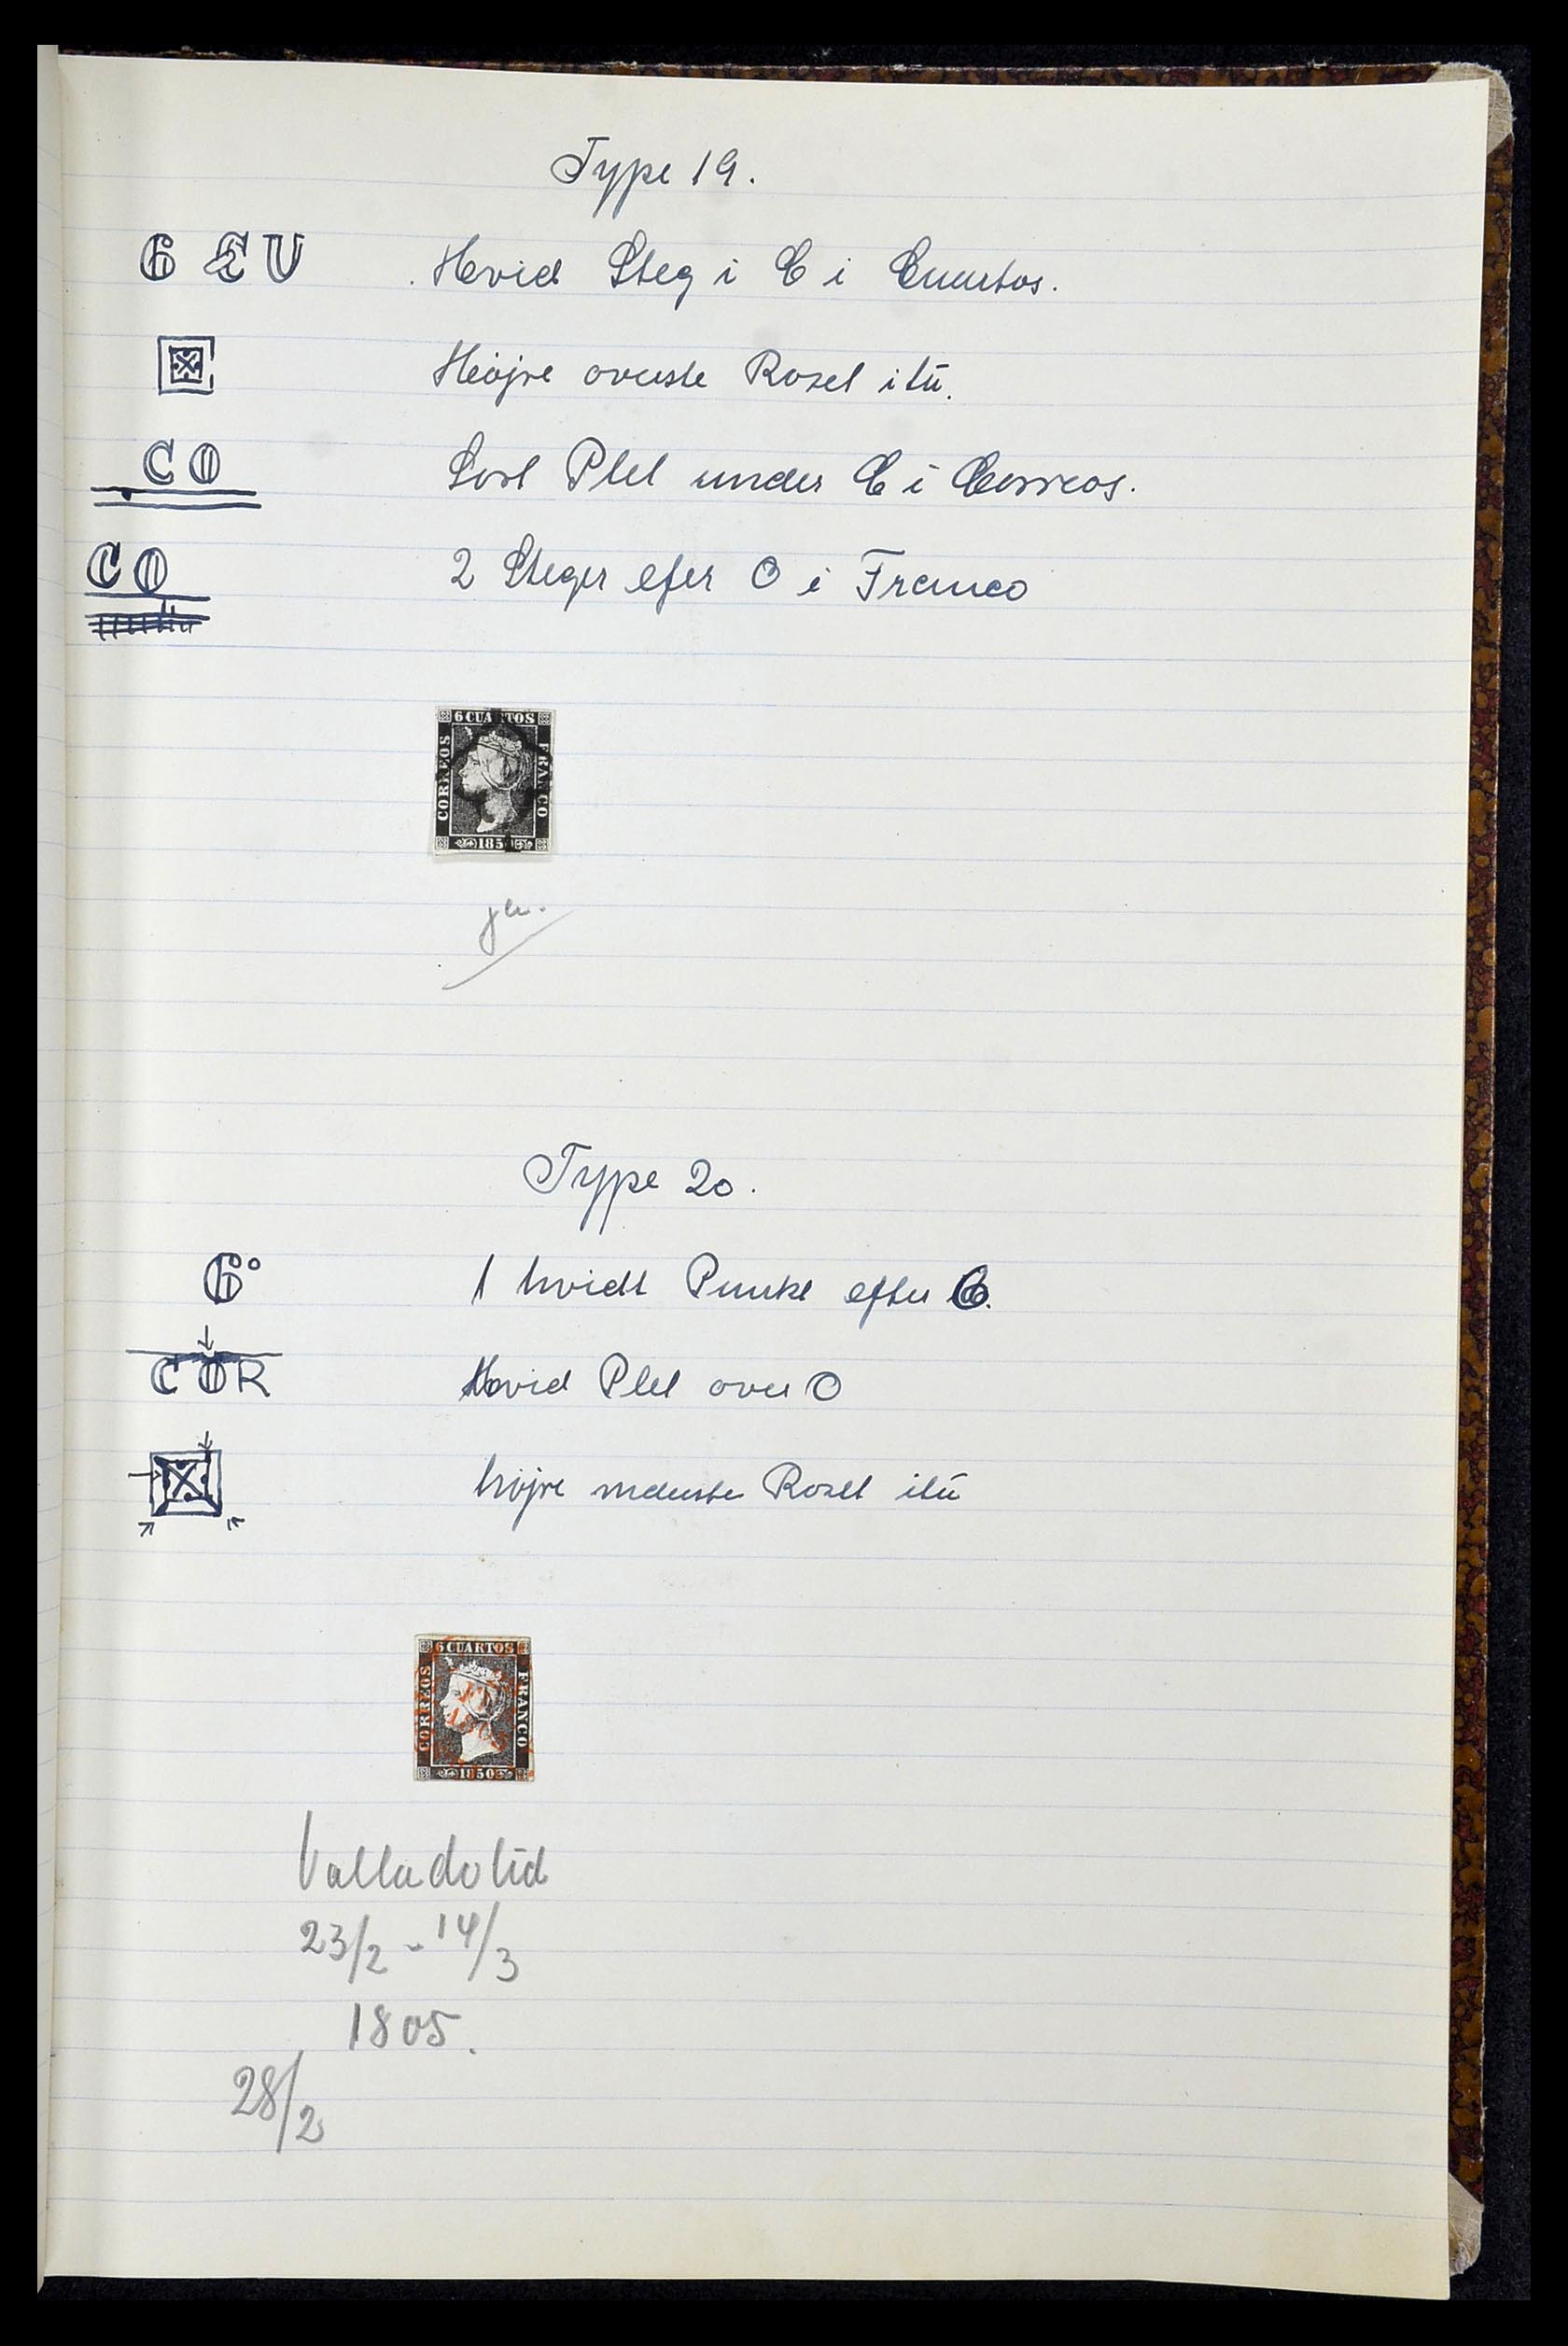 Type 19.
6 CU Hvid Steg i C i Cuartos.
Højre øverste Roset itu.
CO Sort Plet under C i Correos.
CO 2 Steger efer O i Franco
6 CUARTOS
CORREOS
FRANCO
185
Type 20.
6° 1 hvidt Punkt efter 6.
COR Hvid Plet over O
højre nederste Roset itu
6 CUARTOS
CORREOS
FRANCO
1850
Valladolid
23/2 - 14/3
1805.
28/2